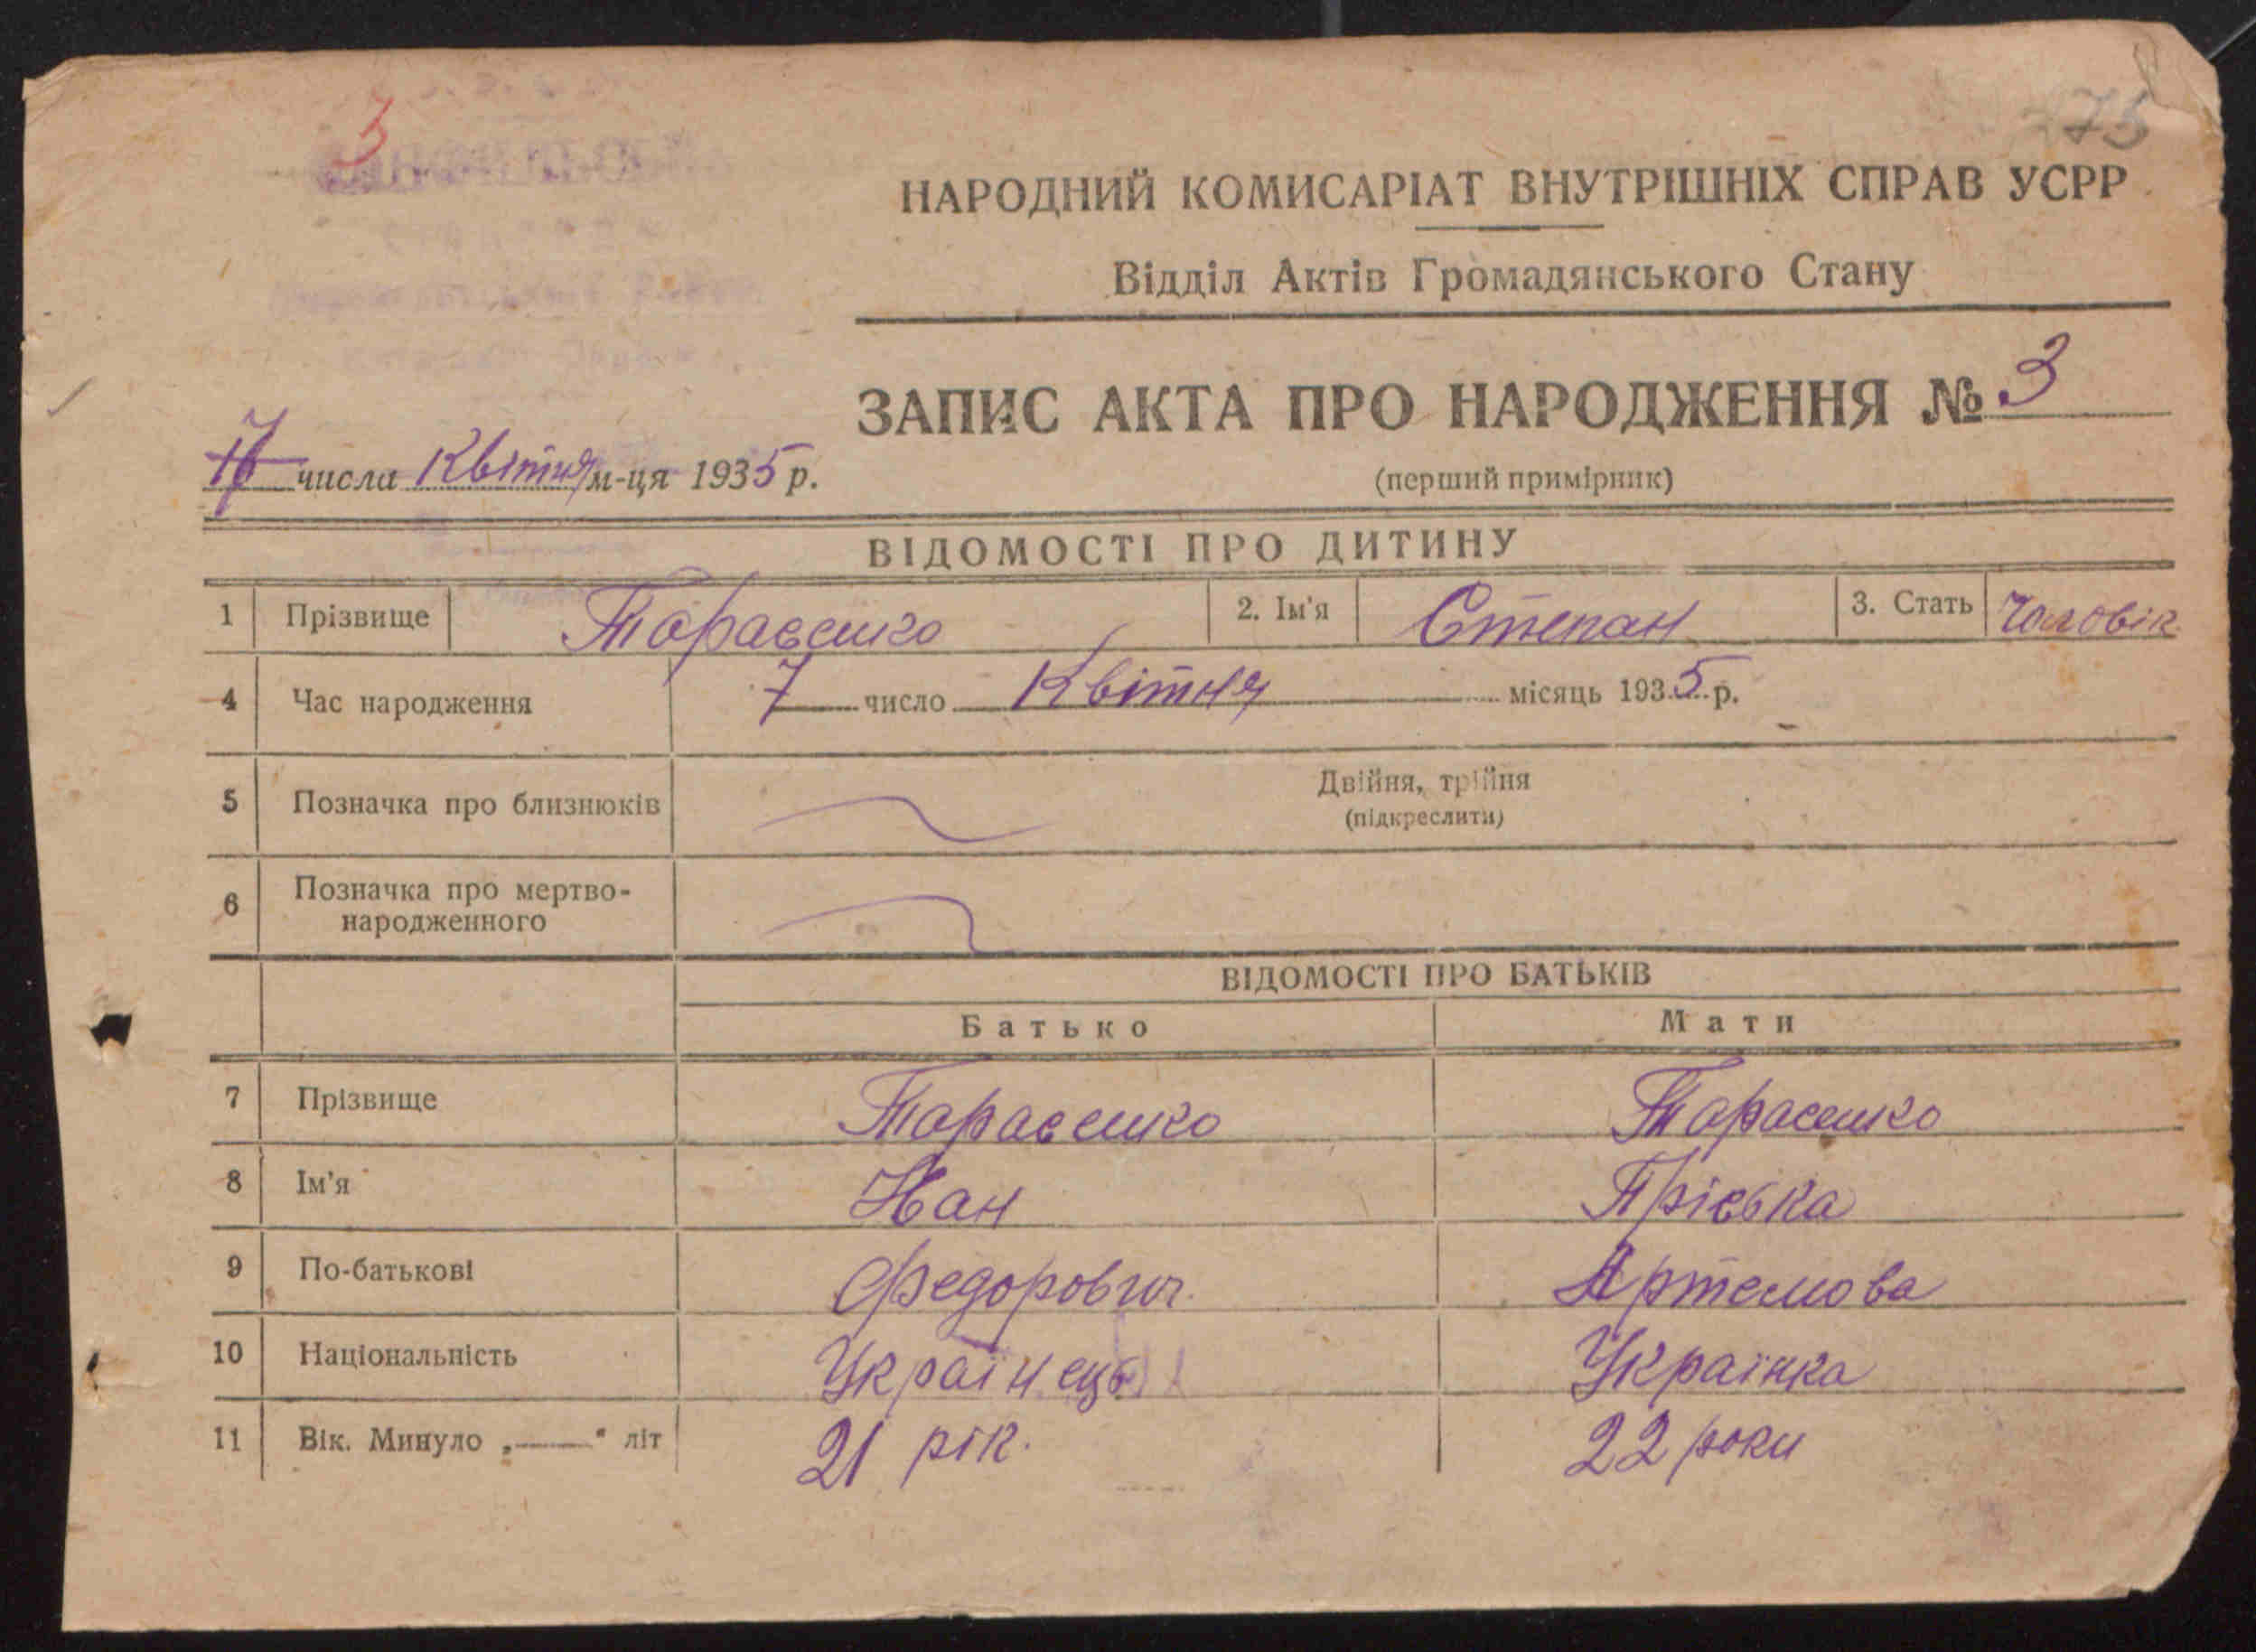 3
175
НАРОДНИЙ КОМИСАРІАТ ВНУТРІШНІХ СПРАВ УСРР
Відділ Актів Громадянського Стану
ЗАПИС АКТА ПРО НАРОДЖЕННЯ № 3
числа Квітня м-ця 1935 р.
(перший примірник)
ВІДОМОСТІ ПРО ДИТИНУ
1 Прізвище Тарасенко 2. Ім'я Степан 3. Стать Чоловік
4 Час народження 7 число Квітня місяць 1935 р.
5 Позначка про близнюків Двійня, трійня
(підкреслити)
6 Позначка про мертво-
народженного
ВІДОМОСТІ ПРО БАТЬКІВ
Батько Мати
7 Прізвище Тарасенко Тарасенко
8 Ім'я Іван Пріська
9 По-батькові Федорович Артемова
10 Національність Українець Українка
11 Вік. Минуло „——" літ 21 рік. 22 роки